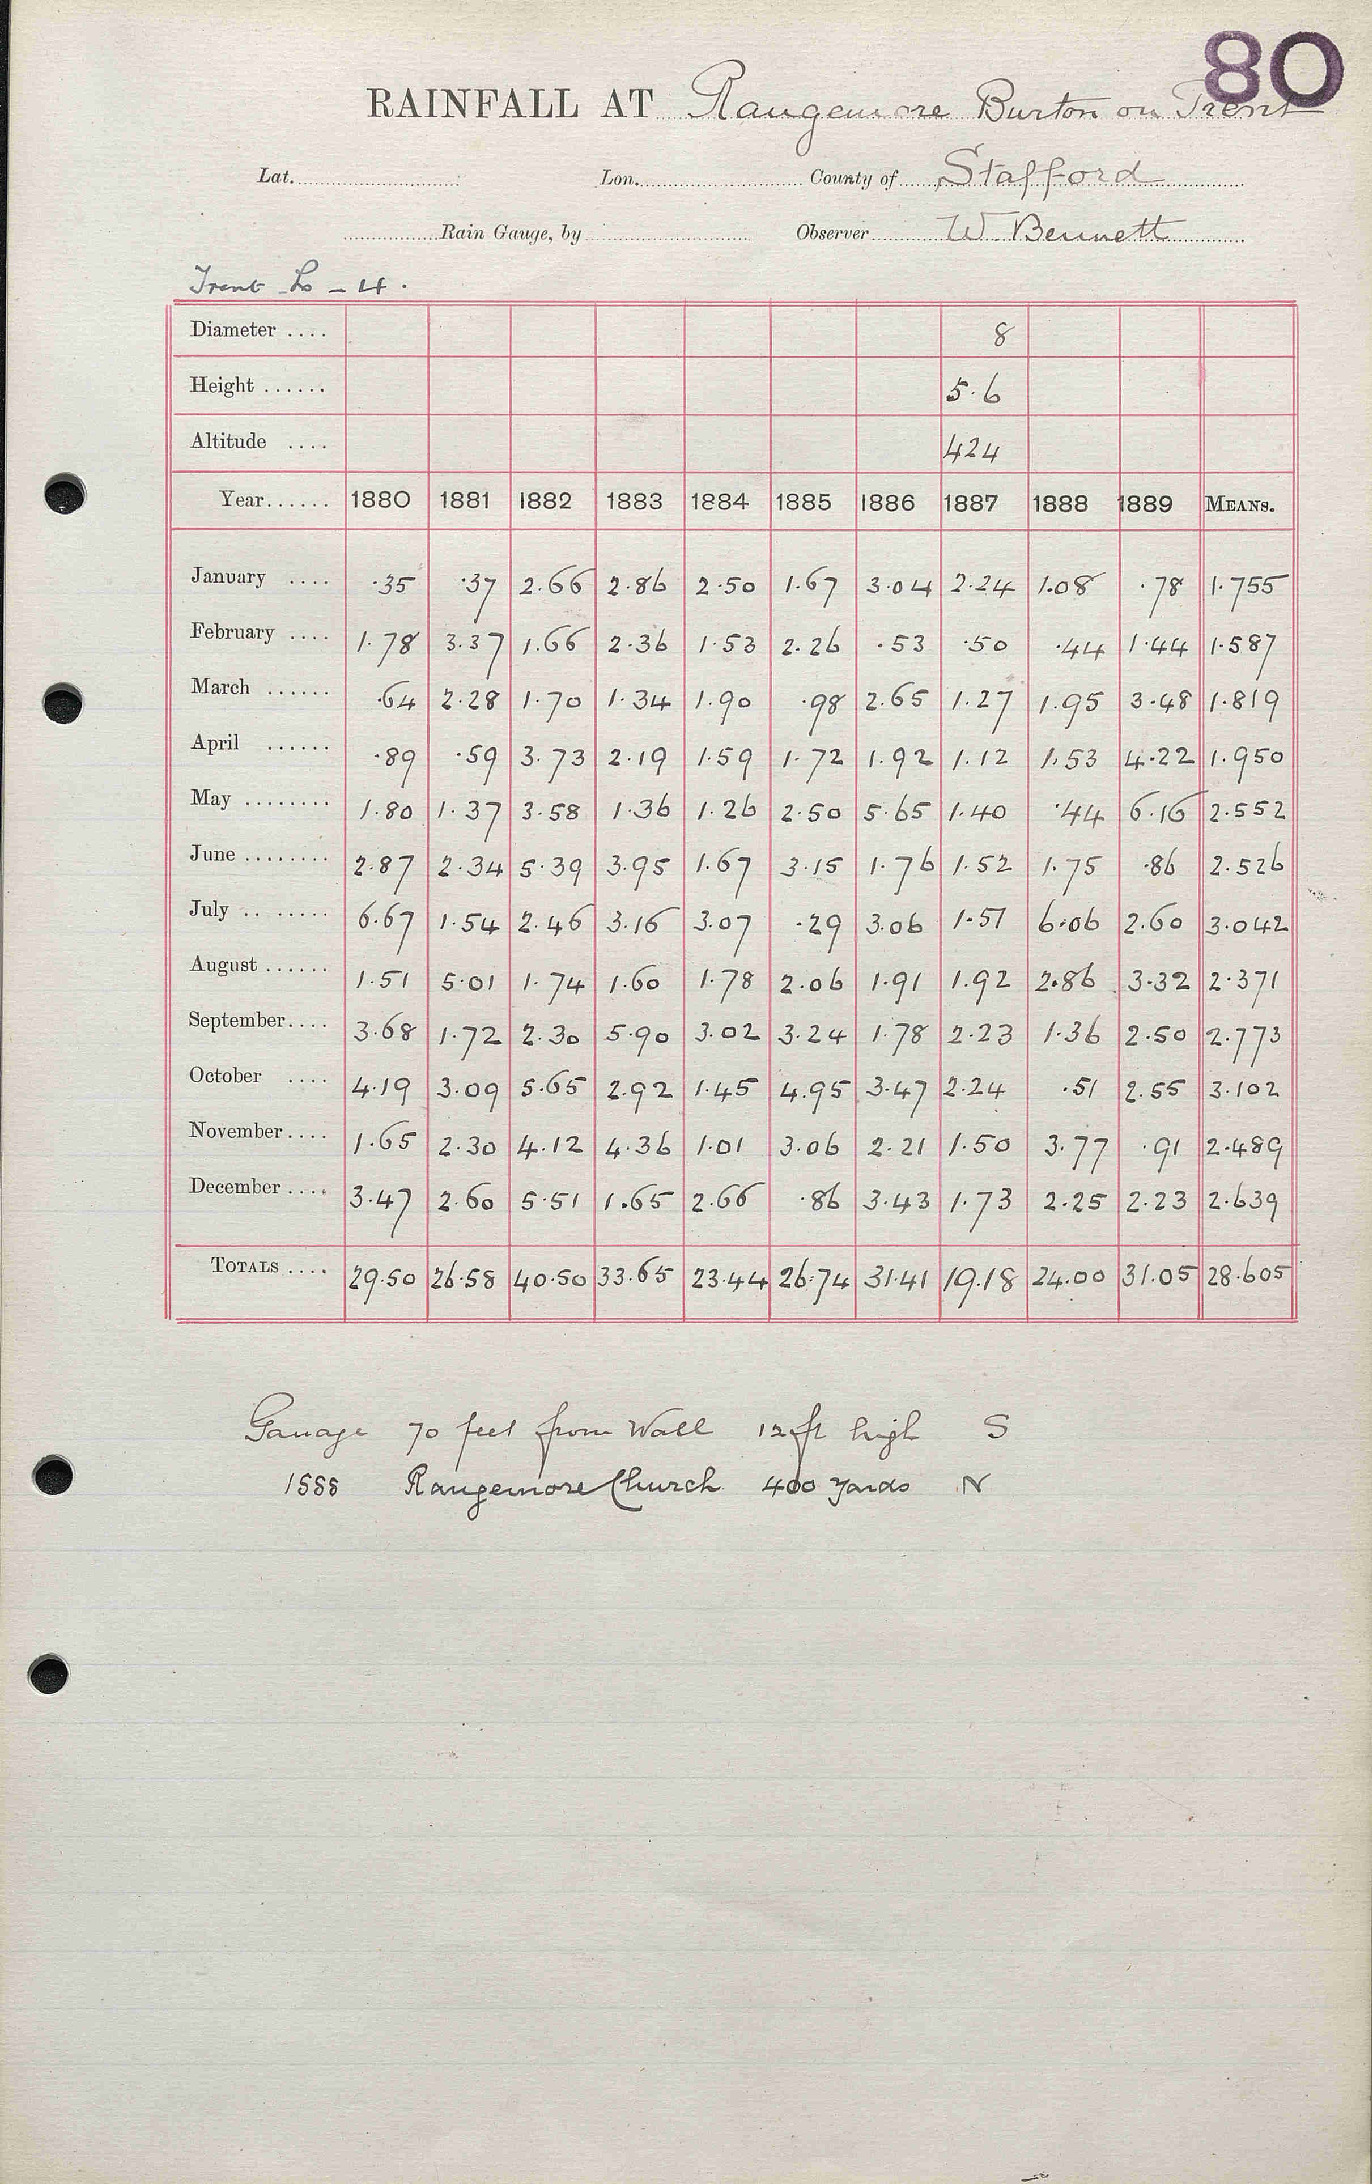 80
RAINFALL AT Rangemore Burton on Trent
Lat. Lon. County of Stafford
Rain Gauge, by Observer W Bennett
Trent Lo - 4.
Diameter .... 8
Height ...... 5.6
Altitude .... 424
Year...... 1880 1881 1882 1883 1884 1885 1886 1887 1888 1889 MEANS.
January .... .35 .37 2.66 2.86 2.50 1.67 3.04 2.24 1.08 .78 1.755
February .... 1.78 3.37 1.66 2.36 1.53 2.26 .53 .50 .44 1.44 1.587
March ...... .64 2.28 1.70 1.34 1.90 .98 2.65 1.27 1.95 3.48 1.819
April ...... .89 .59 3.73 2.19 1.59 1.72 1.92 1.12 1.53 4.22 1.950
May ........ 1.80 1.37 3.58 1.36 1.26 2.50 5.65 1.40 .44 6.16 2.552
June ........ 2.87 2.34 5.39 3.95 1.67 3.15 1.76 1.52 1.75 .86 2.526
July ........ 6.67 1.54 2.46 3.16 3.07 .29 3.06 1.51 6.06 2.60 3.042
August ...... 1.51 5.01 1.74 1.60 1.78 2.06 1.91 1.92 2.86 3.32 2.371
September.... 3.68 1.72 2.30 5.90 3.02 3.24 1.78 2.23 1.36 2.50 2.773
October .... 4.19 3.09 5.65 2.92 1.45 4.95 3.47 2.24 .51 2.55 3.102
November.... 1.65 2.30 4.12 4.36 1.01 3.06 2.21 1.50 3.77 .91 2.489
December .... 3.47 2.60 5.51 1.65 2.66 .86 3.43 1.73 2.25 2.23 2.639
TOTALS .... 29.50 26.58 40.50 33.65 23.44 26.74 31.41 19.18 24.00 31.05 28.605
70 feet from Wall 12 ft high S
1888 Rangemore Church 400 yards N